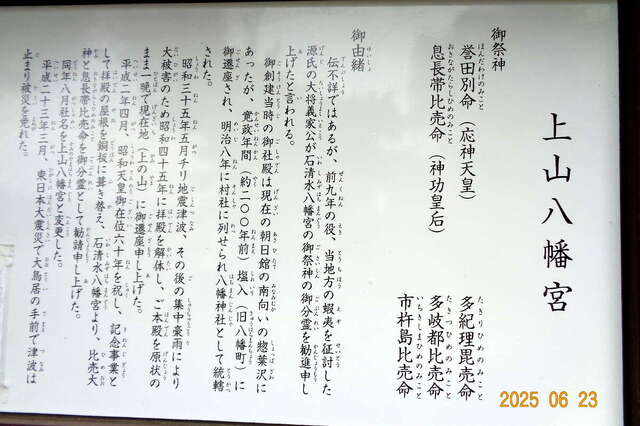 上山八幡宮
御祭神
誉田別命（応神天皇）
息長帯比売命（神功皇后）
多紀理毘売命
多岐都比売命
市杵島比売命
御由緒
伝不詳ではあるが、前九年の役、当地方の蝦夷を征討した
源氏の大将義家公が石清水八幡宮の御祭神の御分霊を勧進申し
上げたと言われる。
御創建当時の御社殿は現在の朝日館の南向いの惣葉沢に
あったが、寛政年間（約二〇〇年前）塩入（旧八幡町）に
御遷座され、明治八年に村社に列せられ八幡神社として統轄
された。
昭和三十五年五月チリ地震津波、その後の集中豪雨により
大被害のため昭和四十五年に拝殿を解体し、ご本殿を原状の
まま一晩で現在地（上の山）に御遷座申し上げた。
平成二年四月、昭和天皇御在位六十年を祝し、記念事業と
して拝殿の屋根を銅板に葺き替え、石清水八幡宮より、比売大
神と息長帯比売命を御分霊として勧請申し上げた。
同年八月社名を上山八幡宮と変更した。
平成二十三年三月、東日本大震災で大鳥居の手前で津波は
止まり被災を免れた。
2025 06 23